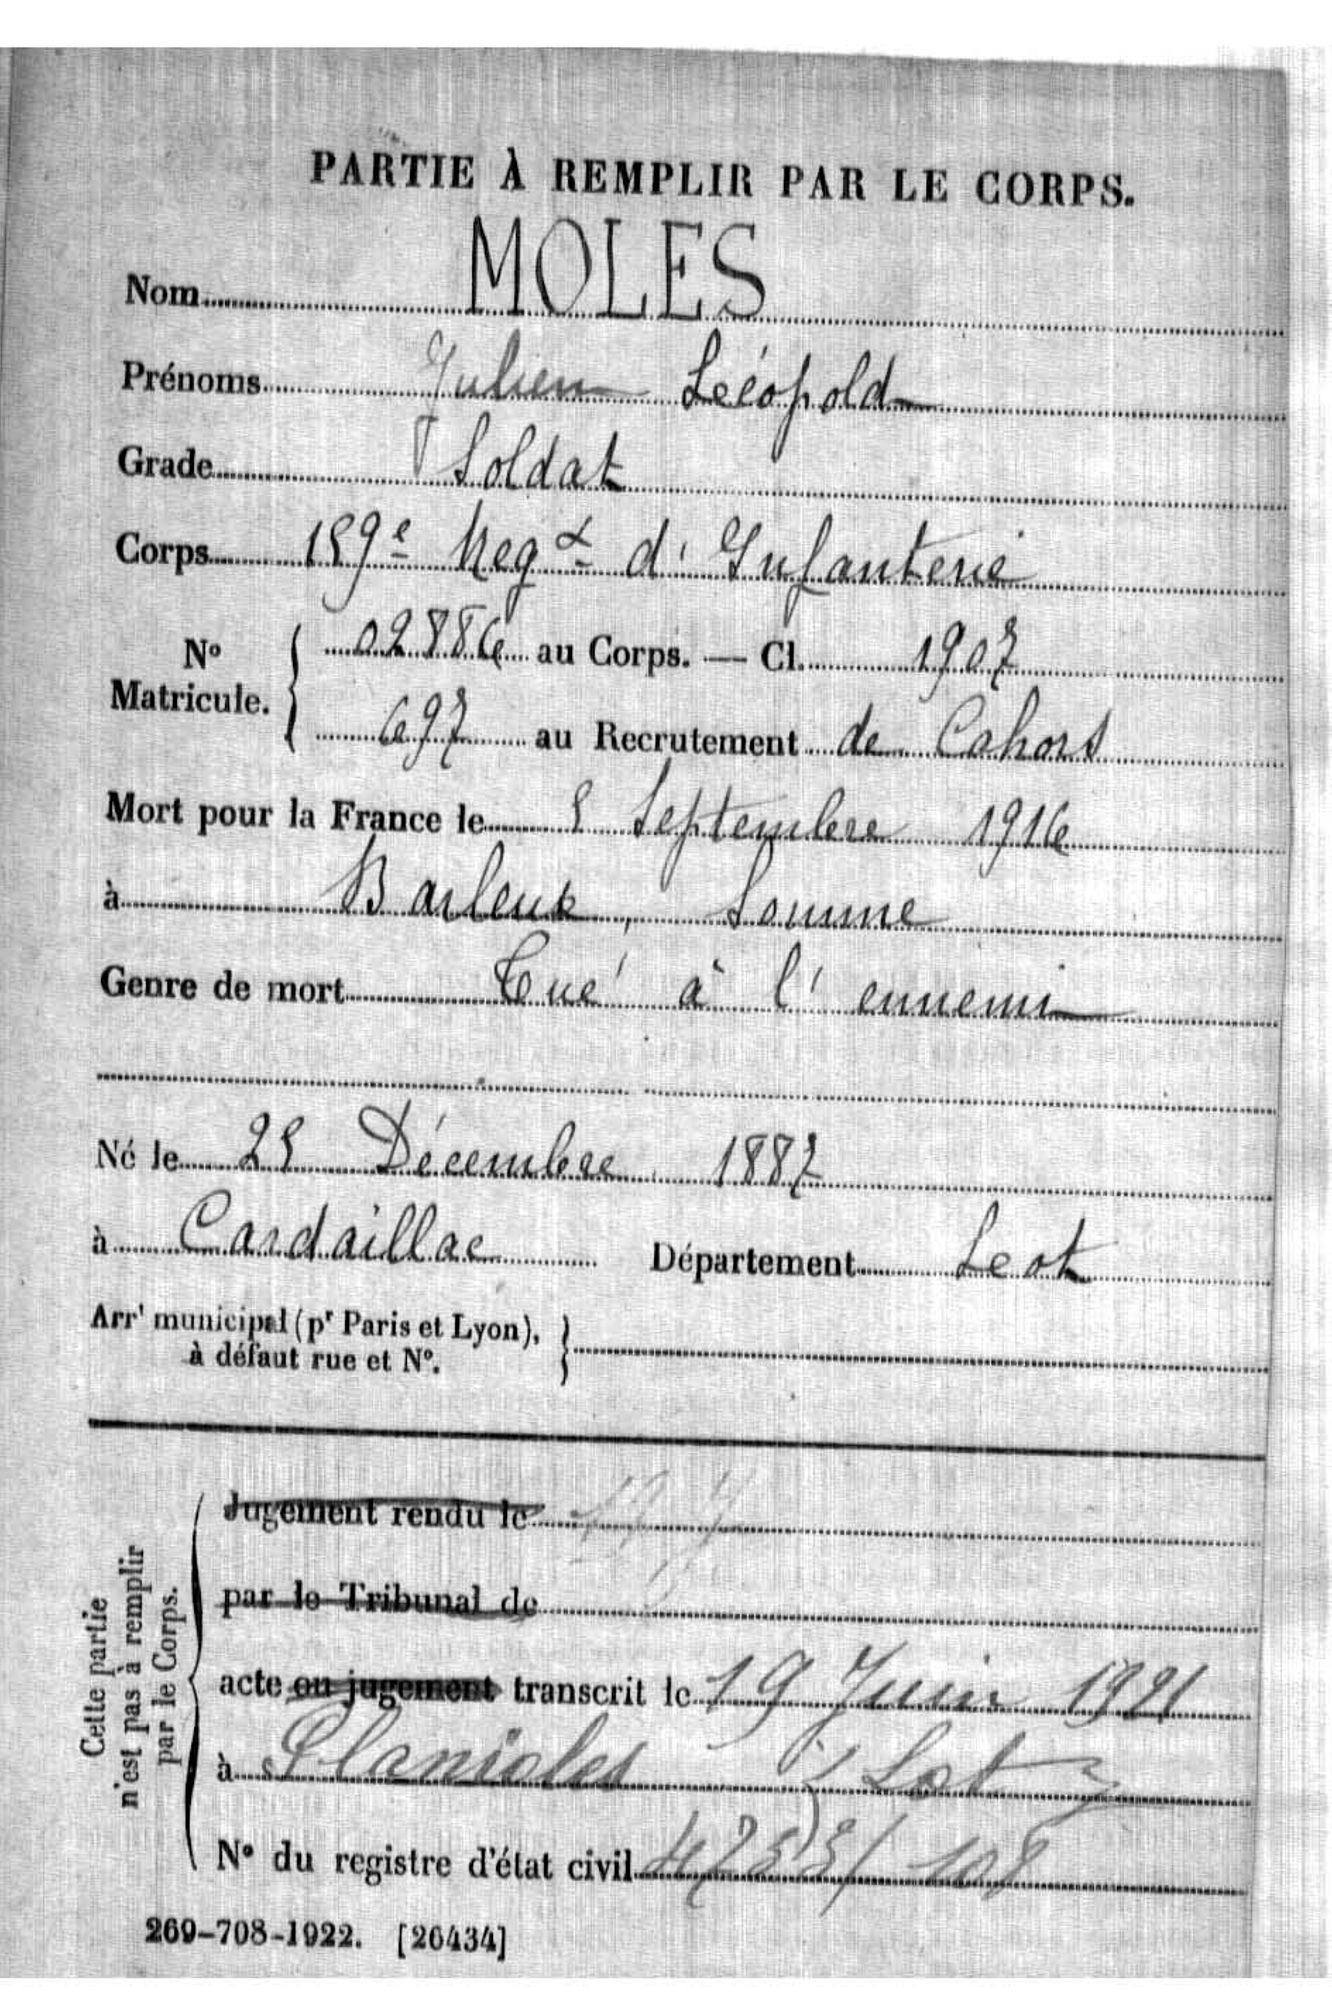 PARTIE À REMPLIR PAR LE CORPS.
Nom MOLES
Prénoms Julien Léopold
Grade Soldat
Corps 159e Regt d'Infanterie
No Matricule. 02886 au Corps. — Cl. 1907
697 au Recrutement de Cahors
Mort pour la France le 5 Septembre 1916
à Barleux, Somme
Genre de mort Tué à l'ennemi
Né le 25 Décembre 1887
à Cardaillac Département Lot
Arrt municipal (pr Paris et Lyon),
à défaut rue et No.
Cette partie
n'est pas à remplir
par le Corps.
Jugement rendu le
par le Tribunal de
acte ou jugement transcrit le 19 Juin 1921
à Planioles (Lot)
No du registre d'état civil
269-708-1922. [26434]